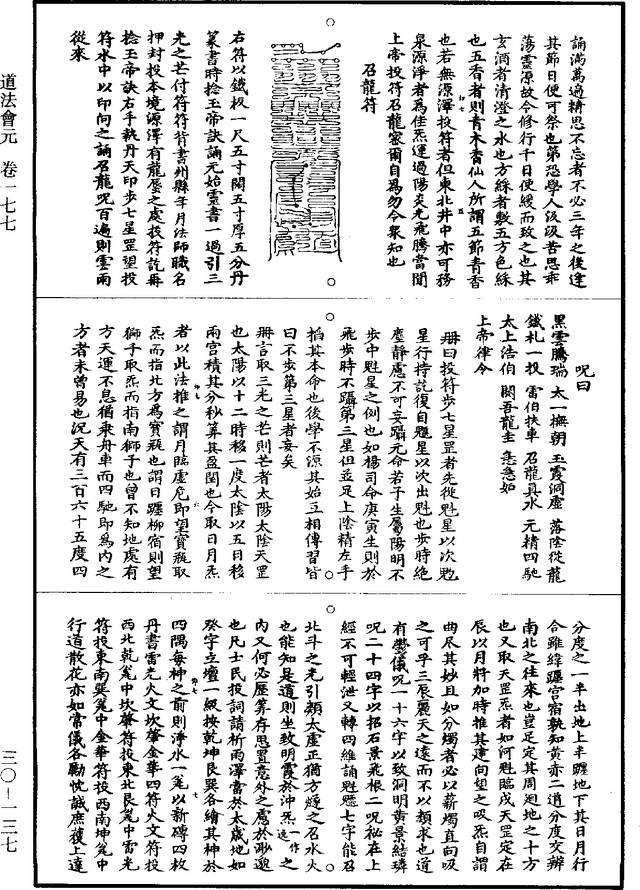 道法會元　卷一七七
三〇—一三七
誦滿萬過耕思不忘者不必三年之後逢
其節日便可祭也第恐學人汲汲苦思乖
蕩靈源故令修行千日便緩而致之也其
玄酒者清澄之水也方綵者數五方色綵
也五香者則青木香仙人所謂五節青香
也若無源澤投符者但東北井中亦可務
泉源淨者為佳炁運過陽炎光飛騰當聞
上帝投符召龍密爾自為勿令眾知也
召龍符
右符以鐵板一尺五寸闊五寸厚五分丹
篆書時捻玉帝訣誦元始靈書一過引三
光之芒付符符背書州縣年月法師職名
押封投本境源澤有龍蜃之處投符訖再
捻玉帝訣右手執丹天印步七星罡望投
符水中以印向之誦召龍呪百遍則雲雨
從來
呪曰
黑雲騰瑞　太一撫朝　玉霞洞虛　落陰從龍
鐵札一投　雷伯扶車　召龍真水　元精四馳
太上浩伯　闕吾龍圭　急急如
上帝律令
冊曰投符步七星罡者先從魁星以次魁
星行持訖復自魁星以次出魁也步時絕
塵靜慮不可妄躡元命若子生屬陽明不
步中魁星之例也如楊司命庚寅生則於
飛步時不躡第三星但並足上陰精左手
掐其本命也後學不源其始互相傳習皆
曰不步第三星者妄矣
冊言取三光之芒則芒者太陽太陰天罡
也太陽以十二時移一度太陰以五日移
兩宮積其分秒筭其盈閏也今取日月炁
者以此法推之謂月臨虛危即望寶瓶取
炁而指北方為寶瓶也謂日躔柳宿則望
獅子取炁而指南獅子也曾不知地處有
方天運不息猶乘舟車而四馳即為內之
方者未曾易也況天有三百六十五度四
分度之一半出地上半躔地下其日月行
合雖緯躔宮宿孰知黃赤二道分度交辨
南北之往來也豈足定其周迴地之十方
也又取天罡炁者如何魁臨戌天罡定在
辰以月將加時推其建向望之吸炁自謂
曲尽其妙且如分燭者必以薪燭直向吸
之可乎三辰麗天之遠而不以類求也道
有鬱儀呪一十六字以致洞明黃景結璘
呪二十四字以招石景飛根二呪祕在上
經不可輕泄又轉四維誦魁魒七字能召
北斗之光引頰太虛正猶方燧之召水火
也能知是道則坐致明霞於沖炁一作逸之
內又何必歷筭存思置意外之處於渺邈
也凡士民投詞請祈雨澤當於太歲地如
癸字立壇一級按乾坤艮巽各繪其神於
四隅每神之前則淨水一瓮以新磚四枚
丹書雷光火文坎肇金華四符火文符投
西北乾瓮中坎肇符投東北艮瓮中雷光
符投東南巽瓮中金華符投西南坤瓮中
行道散花亦如常儀各勵忱誠庶獲上達